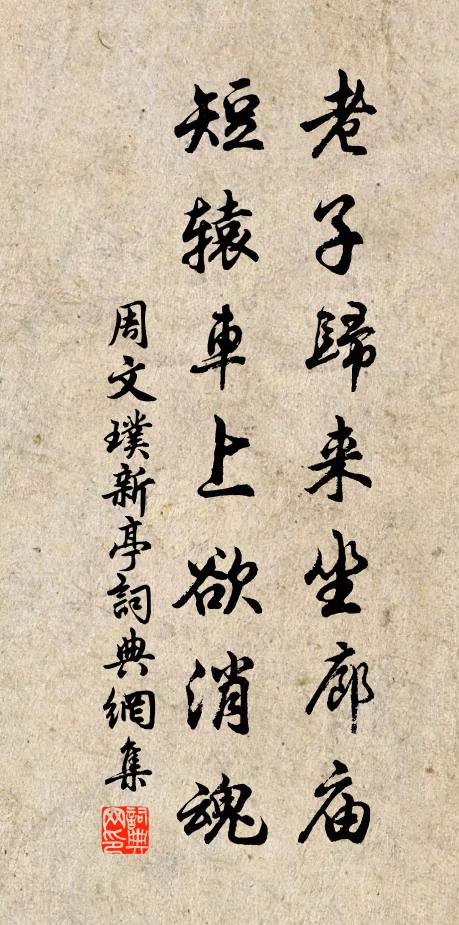 老子歸来坐廊庙
短辕車上欲消魂
周文璞新亭詞典網集
詞典网印